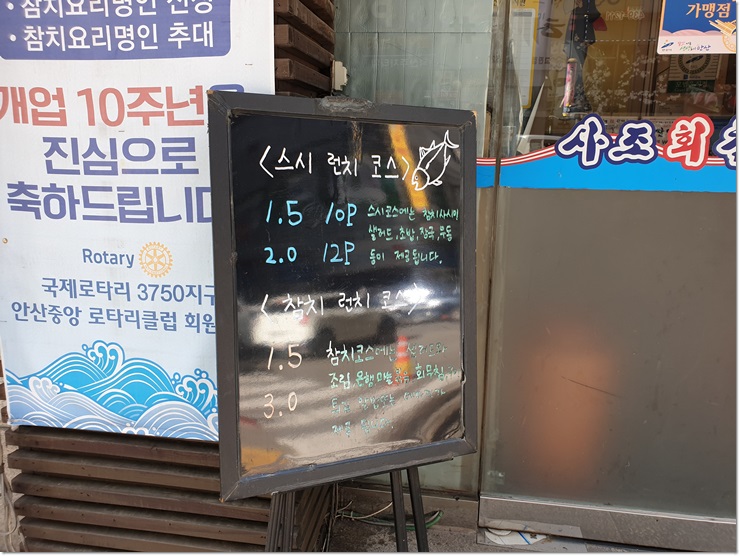 · 참치요리명인 선정
· 참치요리명인 추대
개업 10주년을
진심으로
축하드립니다
Rotary
국제로타리 3750지구
안산중앙 로타리클럽 회원
<스시 런치 코스>
1.5 10P 스시코스에는 참치사시미
샐러드, 초밥, 장국, 우동
2.0 12P 등이 제공됩니다.
<참치 런치 코스>
1.5 참치코스에는
조림, 은행마늘 회무침
3.0
가맹점
사조회